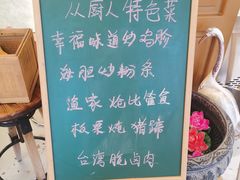 从厨人特色菜
幸福味道炒鸡胗
海胆炒粉条
渔家炖比管鱼
板栗炖猪蹄
台湾脆卤肉